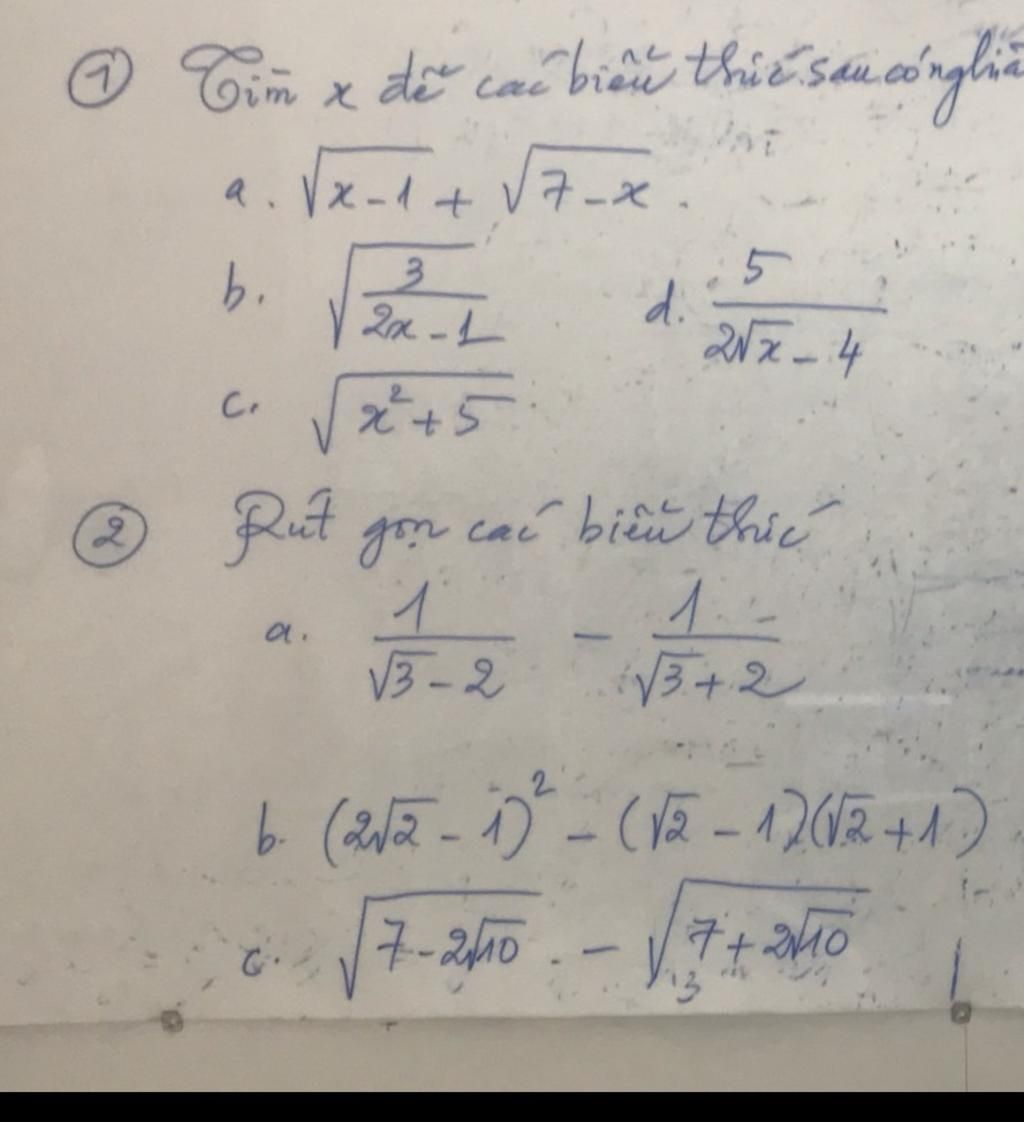 ① Tìm x để các biểu thức sau có nghĩa
a. √(x-1) + √(7-x).
b. √(3/(2x-1)) d. 5/(2√x - 4)
c. √(x²+5)
② Rút gọn các biểu thức
a. 1/(√3-2) - 1/(√3+2)
b. (2√2 - 1)² - (√2 - 1)(√2 + 1)
c. √(7-2√10) - √(7+2√10)